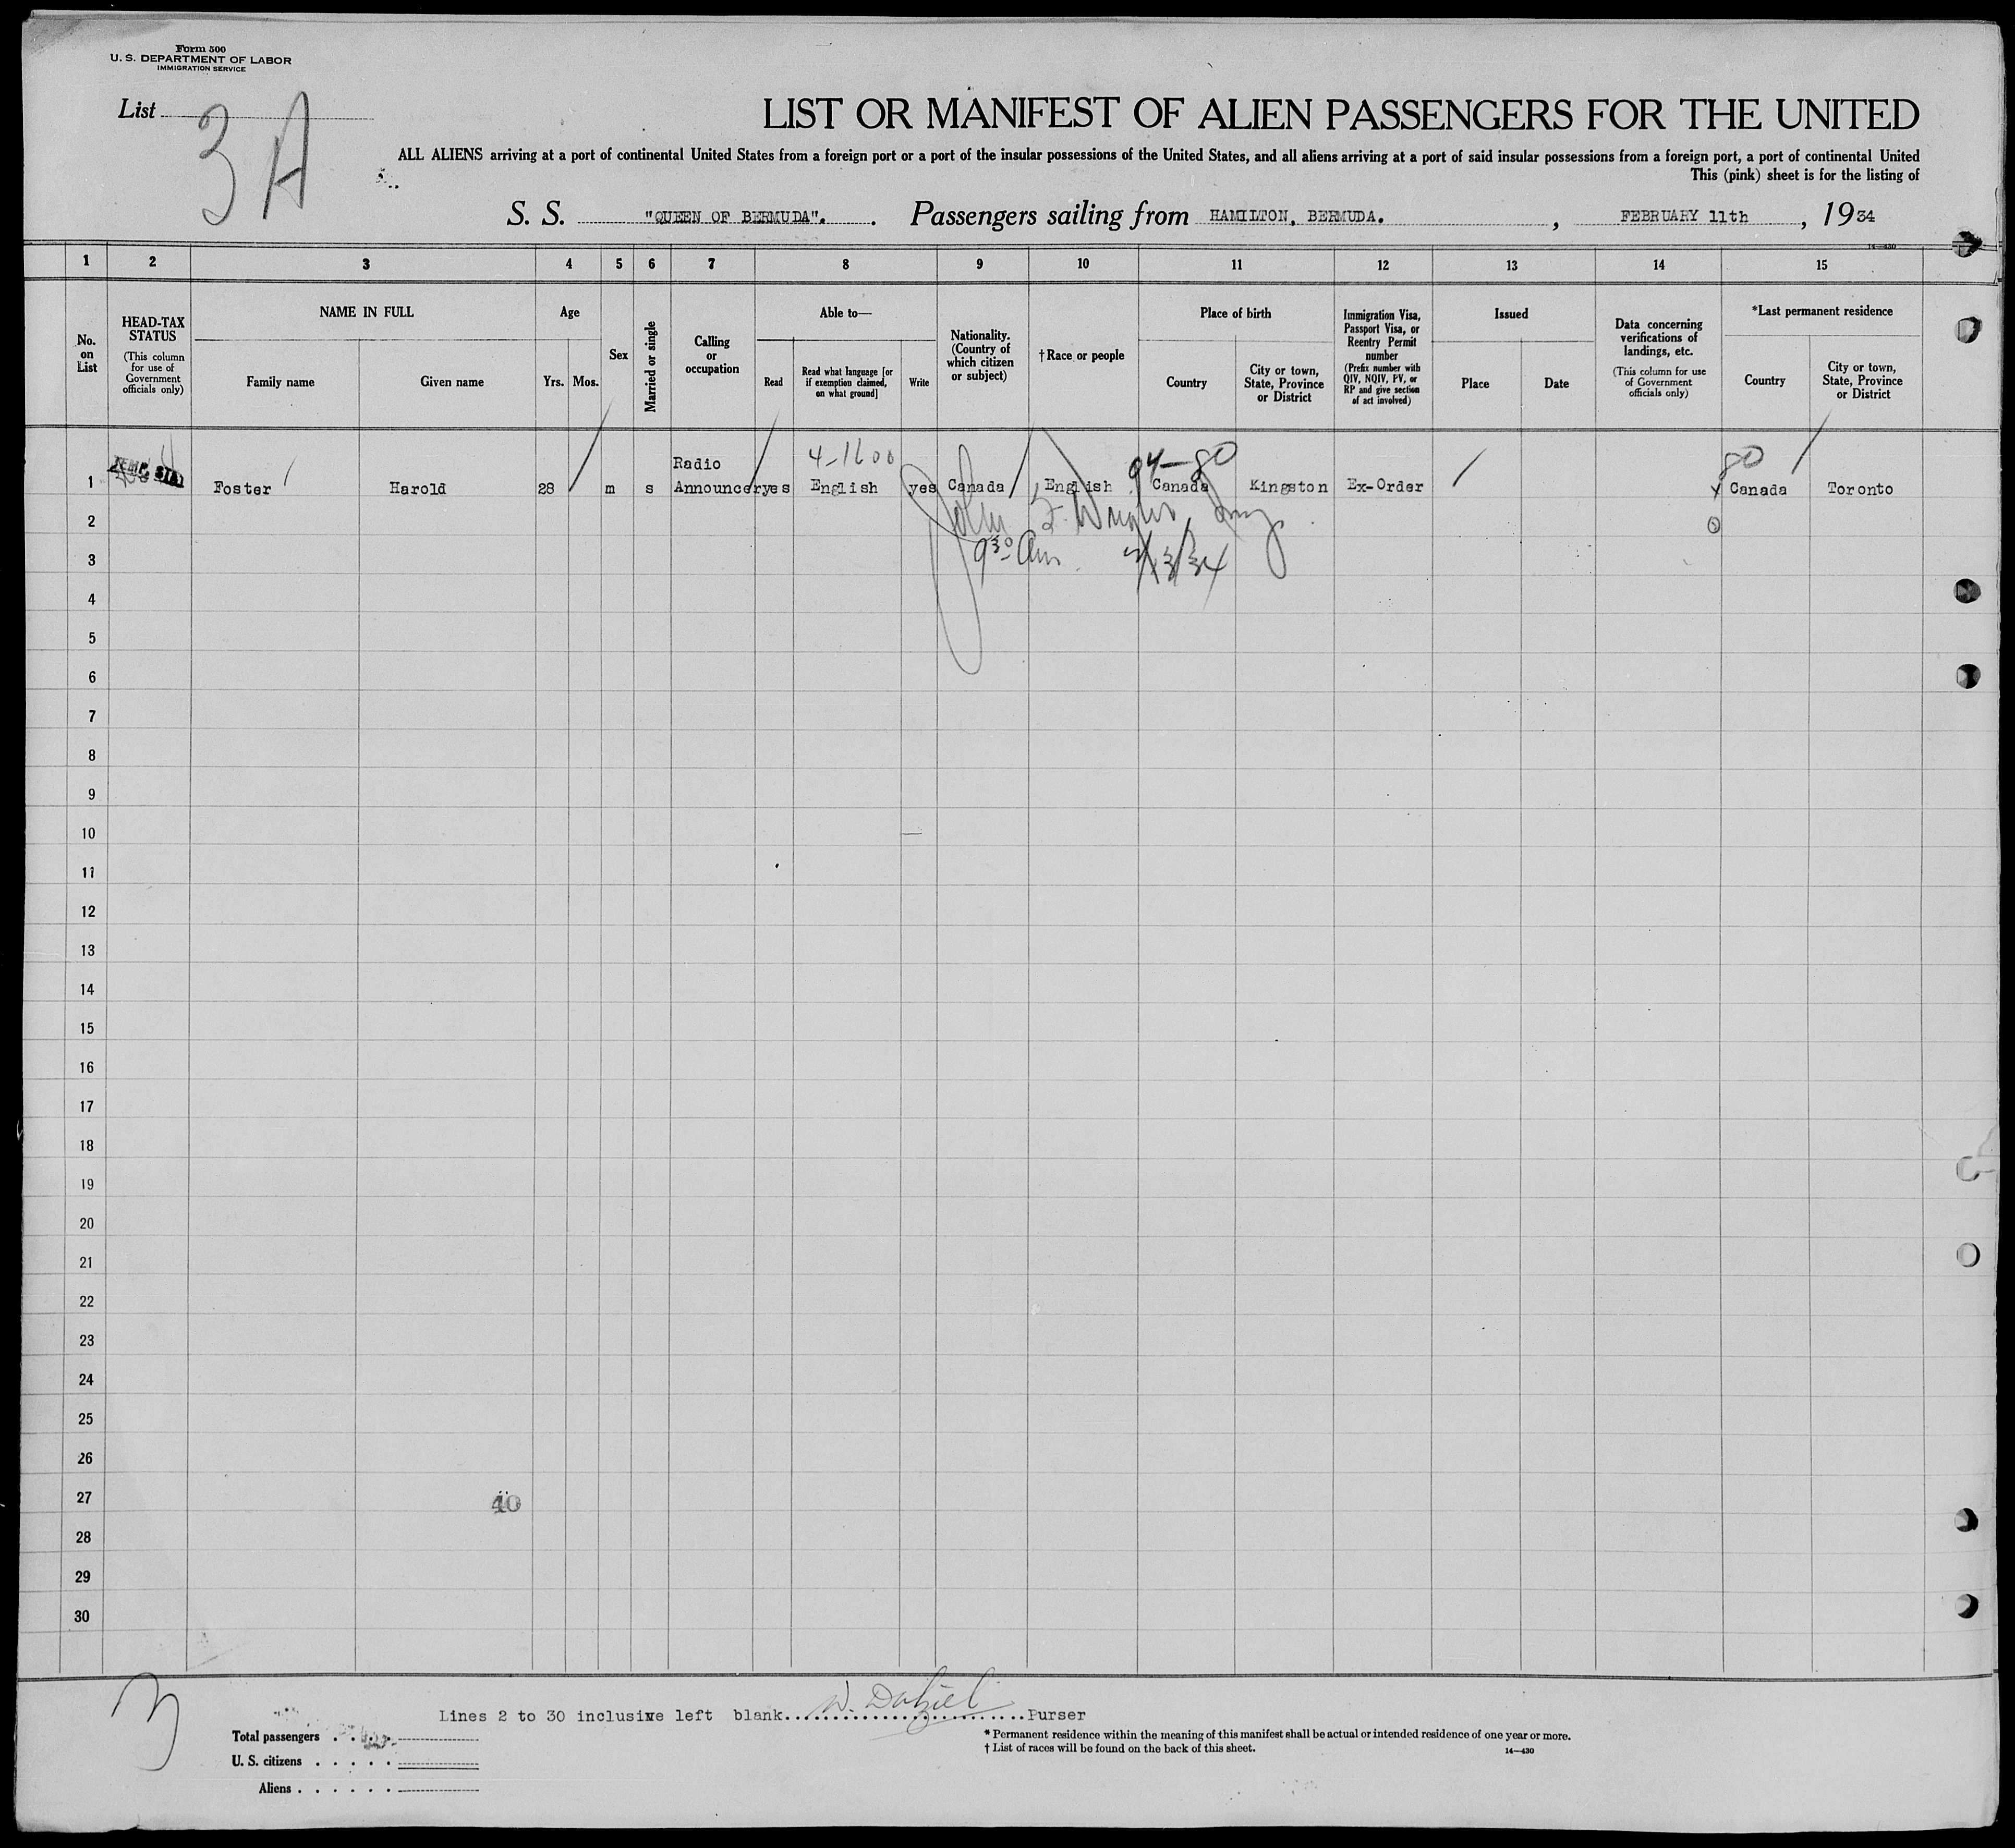 Form 500
U. S. DEPARTMENT OF LABOR
IMMIGRATION SERVICE
List 3A
LIST OR MANIFEST OF ALIEN PASSENGERS FOR THE UNITED
ALL ALIENS arriving at a port of continental United States from a foreign port or a port of the insular possessions of the United States, and all aliens arriving at a port of said insular possessions from a foreign port, a port of continental United
This (pink) sheet is for the listing of
S. S. "QUEEN OF BERMUDA". Passengers sailing from HAMILTON, BERMUDA. , FEBRUARY 11th , 1934
14—430
1 2 3 4 5 6 7 8 9 10 11 12 13 14 15
No. on List
HEAD-TAX STATUS
(This column for use of Government officials only)
NAME IN FULL
Family name
Given name
Age
Yrs. Mos.
Sex
Married or single
Calling or occupation
Able to—
Read
Read what language [or if exemption claimed, on what ground]
Write
Nationality. (Country of which citizen or subject)
† Race or people
Place of birth
Country
City or town, State, Province or District
Immigration Visa, Passport Visa, or Reentry Permit number
(Prefix number with QIV, NQIV, PV, or RP and give section of act involved)
Issued
Place
Date
Data concerning verifications of landings, etc.
(This column for use of Government officials only)
*Last permanent residence
Country
City or town, State, Province or District
4-1600 94-80 80
TEMP. Radio
1 Foster Harold 28 m s Announcer yes English yes Canada English Canada Kingston Ex-Order x Canada Toronto
2 John
3 9³⁰ Am 2/13/34
4
5
6
7
8
9
10
11
12
13
14
15
16
17
18
19
20
21
22
23
24
25
26
27 40
28
29
30
3
Lines 2 to 30 inclusive left blank W. Dalziel Purser
Total passengers
U. S. citizens
Aliens
* Permanent residence within the meaning of this manifest shall be actual or intended residence of one year or more.
† List of races will be found on the back of this sheet.
14—430